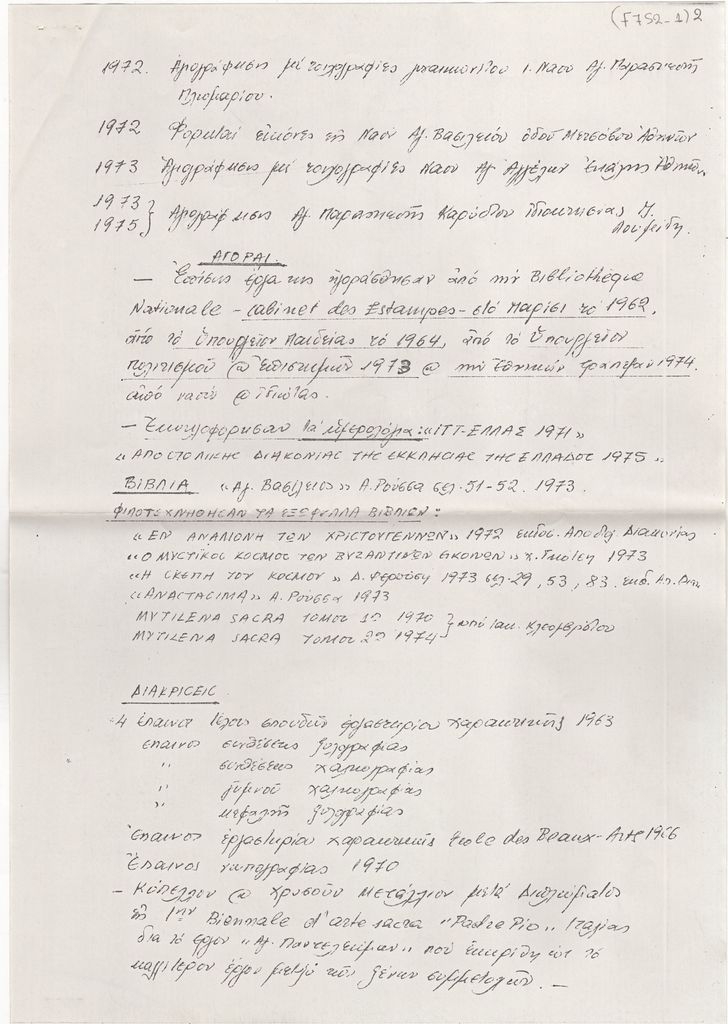 (F752-1) 2
1972. Ἁγιογράφησις μέ τοιχογραφίες Ι. Ναοῦ Ἁγ. Παρασκευῆς
Πλωμαρίου.
1972 Φορηταί εἰκόνες Ναόν Ἁγ. Βασιλείου ὁδοῦ Μετσόβου Ἀθηνῶν
1973 Ἁγιογράφησις μέ τοιχογραφίες Ναοῦ Ἁγ. Ἀγγέλων Ἀθηνῶν.
1973 }
1975 } Ἁγιογράφησις Ἁγ. Παρασκευῆς Καρύστου ἰδιοκτησίας
Λουμίδη.
ΑΓΟΡΑΙ.
— Ἐπίσης ἔργα της ἠγοράσθησαν ἀπό τήν Bibliothèque
Nationale - cabinet des Estampes - στό Παρίσι τό 1962,
ἀπό τό Ὑπουργεῖον Παιδείας τό 1964, ἀπό τό Ὑπουργεῖον
Πολιτισμοῦ @ Ἐπιστημῶν 1973 @ τήν Ἐθνικήν Τράπεζαν 1974.
ἀπό ναούς @ ἰδιώτας.
— Ἐκυκλοφόρησαν τά ἡμερολόγια: «ΙΤΤ-ΕΛΛΑΣ 1971»
«ΑΠΟCΤΟΛΙΚΗC ΔΙΑΚΟΝΙΑC ΤΗC ΕΚΚΛΗCΙΑC ΤΗC ΕΛΛΑΔΟC 1975»
ΒΙΒΛΙΑ «Ἁγ. Βασίλειος» Α. Ρούσσα σελ. 51-52. 1973.
ΦΙΛΟΤΕΧΝΗΘΗCΑΝ ΤΑ ΕΞΩΦΥΛΛΑ ΒΙΒΛΙΩΝ:
«ΕΝ ΑΝΑΜΟΝΗ ΤΩΝ ΧΡΙCΤΟΥΓΕΝΝΩΝ» 1972 ἐκδοσ. Διακονίας
«Ο ΜΥCΤΙΚΟC ΚΟCΜΟC ΤΩΝ ΒΥΖΑΝΤΙΝΩΝ ΕΙΚΟΝΩΝ» Χ. Γκότση 1973
«Η CΚΕΠΗ ΤΟΥ ΚΟCΜΟΥ» Δ. Φερούση 1973 σελ. 29, 53, 83. ἐκδ. Ἀπ. Διακ.
«ΑΝΑCΤΑCΙΜΑ» Α. Ρούσσα 1973
MYTILENA SACRA ΤΟΜΟC 1ος 1970 }
MYTILENA SACRA ΤΟΜΟC 2ος 1974 } ὑπό Ιακ. Κλεομβρότου
ΔΙΑΚΡΙCΕΙC.
4 ἔπαινοι τέλους σπουδῶν ἐργαστηρίου χαρακτικῆς 1963
ἔπαινος συνθέσεως ξυλογραφίας
" συνθέσεως χαλκογραφίας
" γυμνοῦ χαλκογραφίας
" κεφαλῆς ξυλογραφίας
Ἔπαινος ἐργαστηρίου χαρακτικῆς Ecole des Beaux-Arts 1966
Ἔπαινος τυπογραφίας 1970
- Κύπελλον @ Χρυσοῦν Μετάλλιον μετά Διπλώματος
1ην Biennale d'arte sacra "Padre Pio" Ἰταλίας
διά τό ἔργον «Ἁγ. Παντελεήμων» πού ἐκρίθη ὡς τό
καλλίτερον ἔργον μεταξύ τῶν ξένων συμμετοχῶν. —